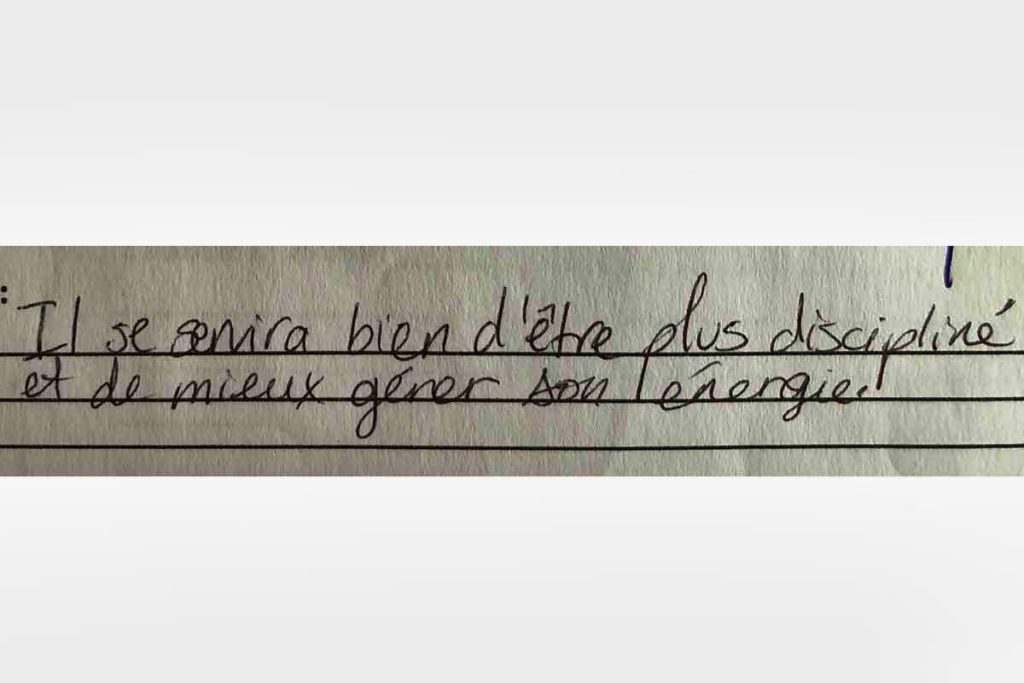 : Il se senira bien d'être plus discipliné
et de mieux gérer son énergie.